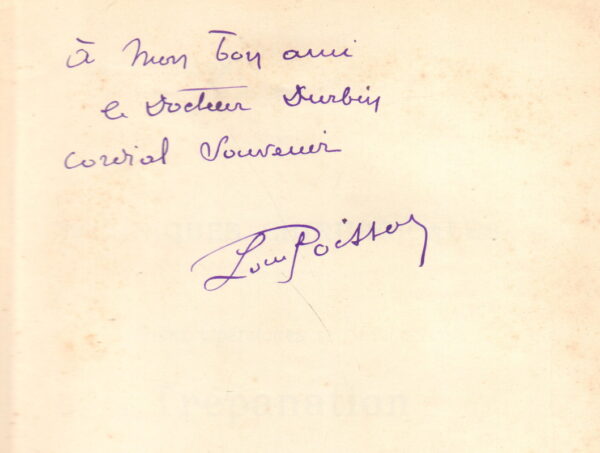 à mon bon ami
le Docteur Durbin
cordial Souvenir
Louis Poisson